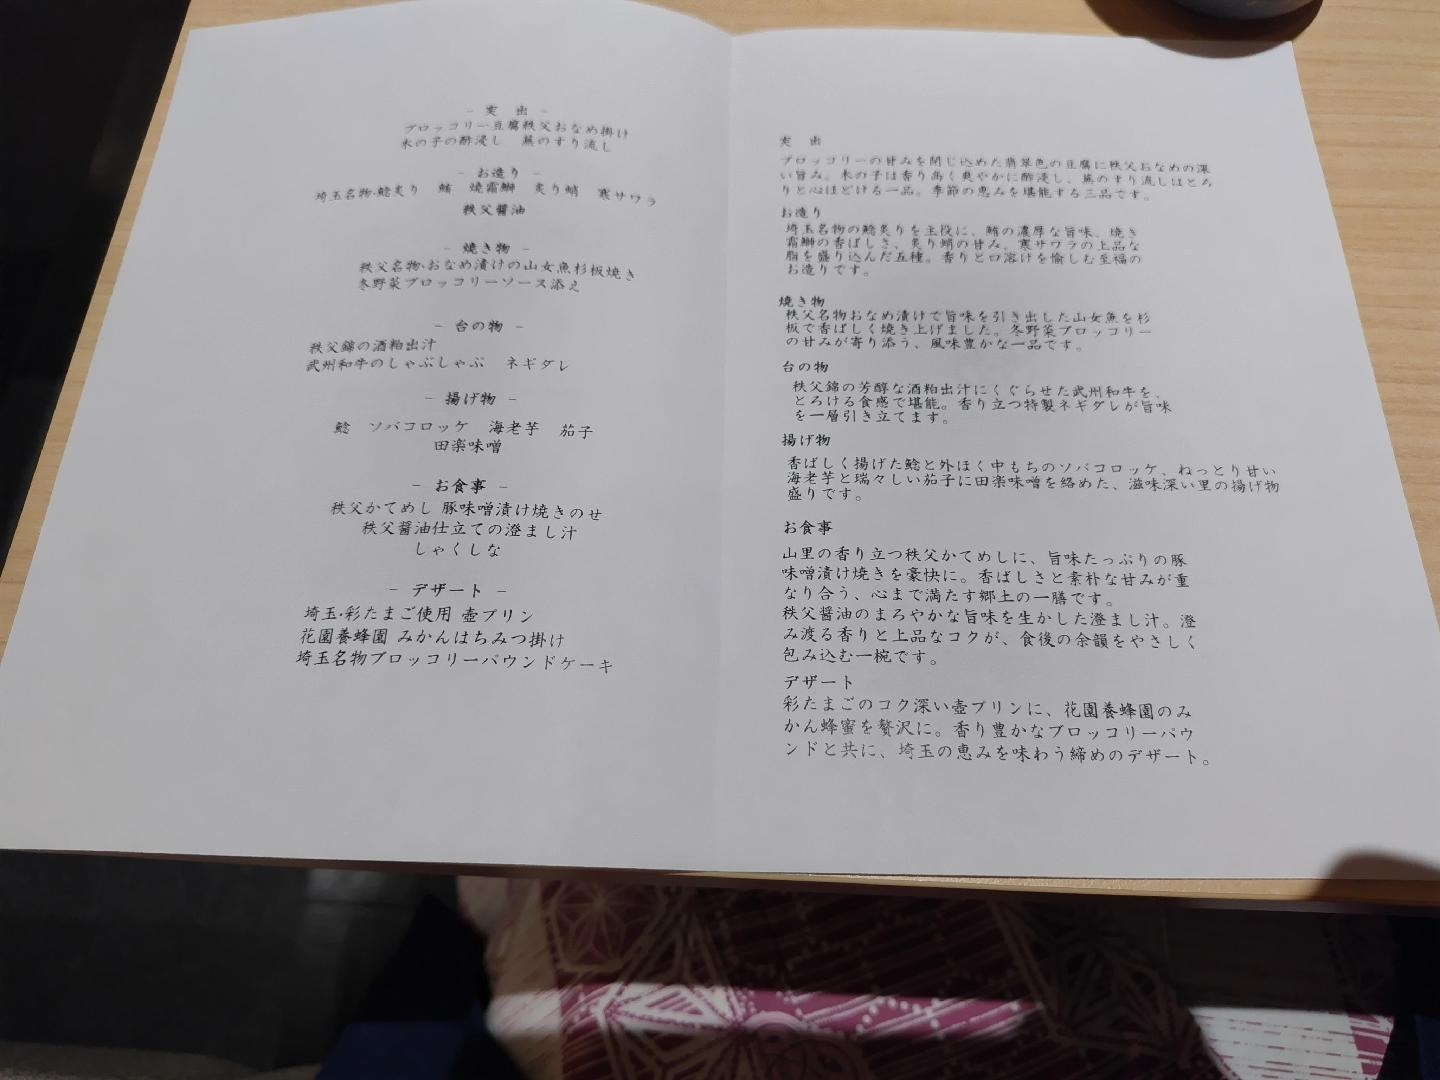 - 突 出 -
ブロッコリー豆腐秩父おなめ掛け
木の子の酢浸し 蕪のすり流し
- お造り -
埼玉名物·鯰炙り 鮪 焼霜鰤 炙り蛸 寒サワラ
秩父醤油
- 焼き物 -
秩父名物·おなめ漬けの山女魚杉板焼き
冬野菜ブロッコリーソース添え
- 台の物 -
秩父錦の酒粕出汁
武州和牛のしゃぶしゃぶ ネギダレ
- 揚げ物 -
鯰 ソバコロッケ 海老芋 茄子
田楽味噌
- お食事 -
秩父かてめし 豚味噌漬け焼きのせ
秩父醤油仕立ての澄まし汁
しゃくしな
- デザート -
埼玉·彩たまご使用 壺プリン
花園養蜂園 みかんはちみつ掛け
埼玉名物ブロッコリーパウンドケーキ
突 出
ブロッコリーの甘みを閉じ込めた翡翠色の豆腐に秩父おなめの深
い旨み。木の子は香り高く爽やかに酢浸し、蕪のすり流しはとろ
りと心ほどける一品。季節の恵みを堪能する三品です。
お造り
埼玉名物の鯰炙りを主役に、鮪の濃厚な旨味、焼き
霜鰤の香ばしさ、炙り蛸の甘み、寒サワラの上品な
脂を盛り込んだ五種。香りと口溶けを愉しむ至福の
お造りです。
焼き物
秩父名物おなめ漬けで旨味を引き出した山女魚を杉
板で香ばしく焼き上げました。冬野菜ブロッコリー
の甘みが寄り添う、風味豊かな一品です。
台の物
秩父錦の芳醇な酒粕出汁にくぐらせた武州和牛を、
とろける食感で堪能。香り立つ特製ネギダレが旨味
を一層引き立てます。
揚げ物
香ばしく揚げた鯰と外ほく中もちのソバコロッケ、ねっとり甘い
海老芋と瑞々しい茄子に田楽味噌を絡めた、滋味深い里の揚げ物
盛りです。
お食事
山里の香り立つ秩父かてめしに、旨味たっぷりの豚
味噌漬け焼きを豪快に。香ばしさと素朴な甘みが重
なり合う、心まで満たす郷土の一膳です。
秩父醤油のまろやかな旨味を生かした澄まし汁。澄
み渡る香りと上品なコクが、食後の余韻をやさしく
包み込む一椀です。
デザート
彩たまごのコク深い壺プリンに、花園養蜂園のみ
かん蜂蜜を贅沢に。香り豊かなブロッコリーパウ
ンドと共に、埼玉の恵みを味わう締めのデザート。